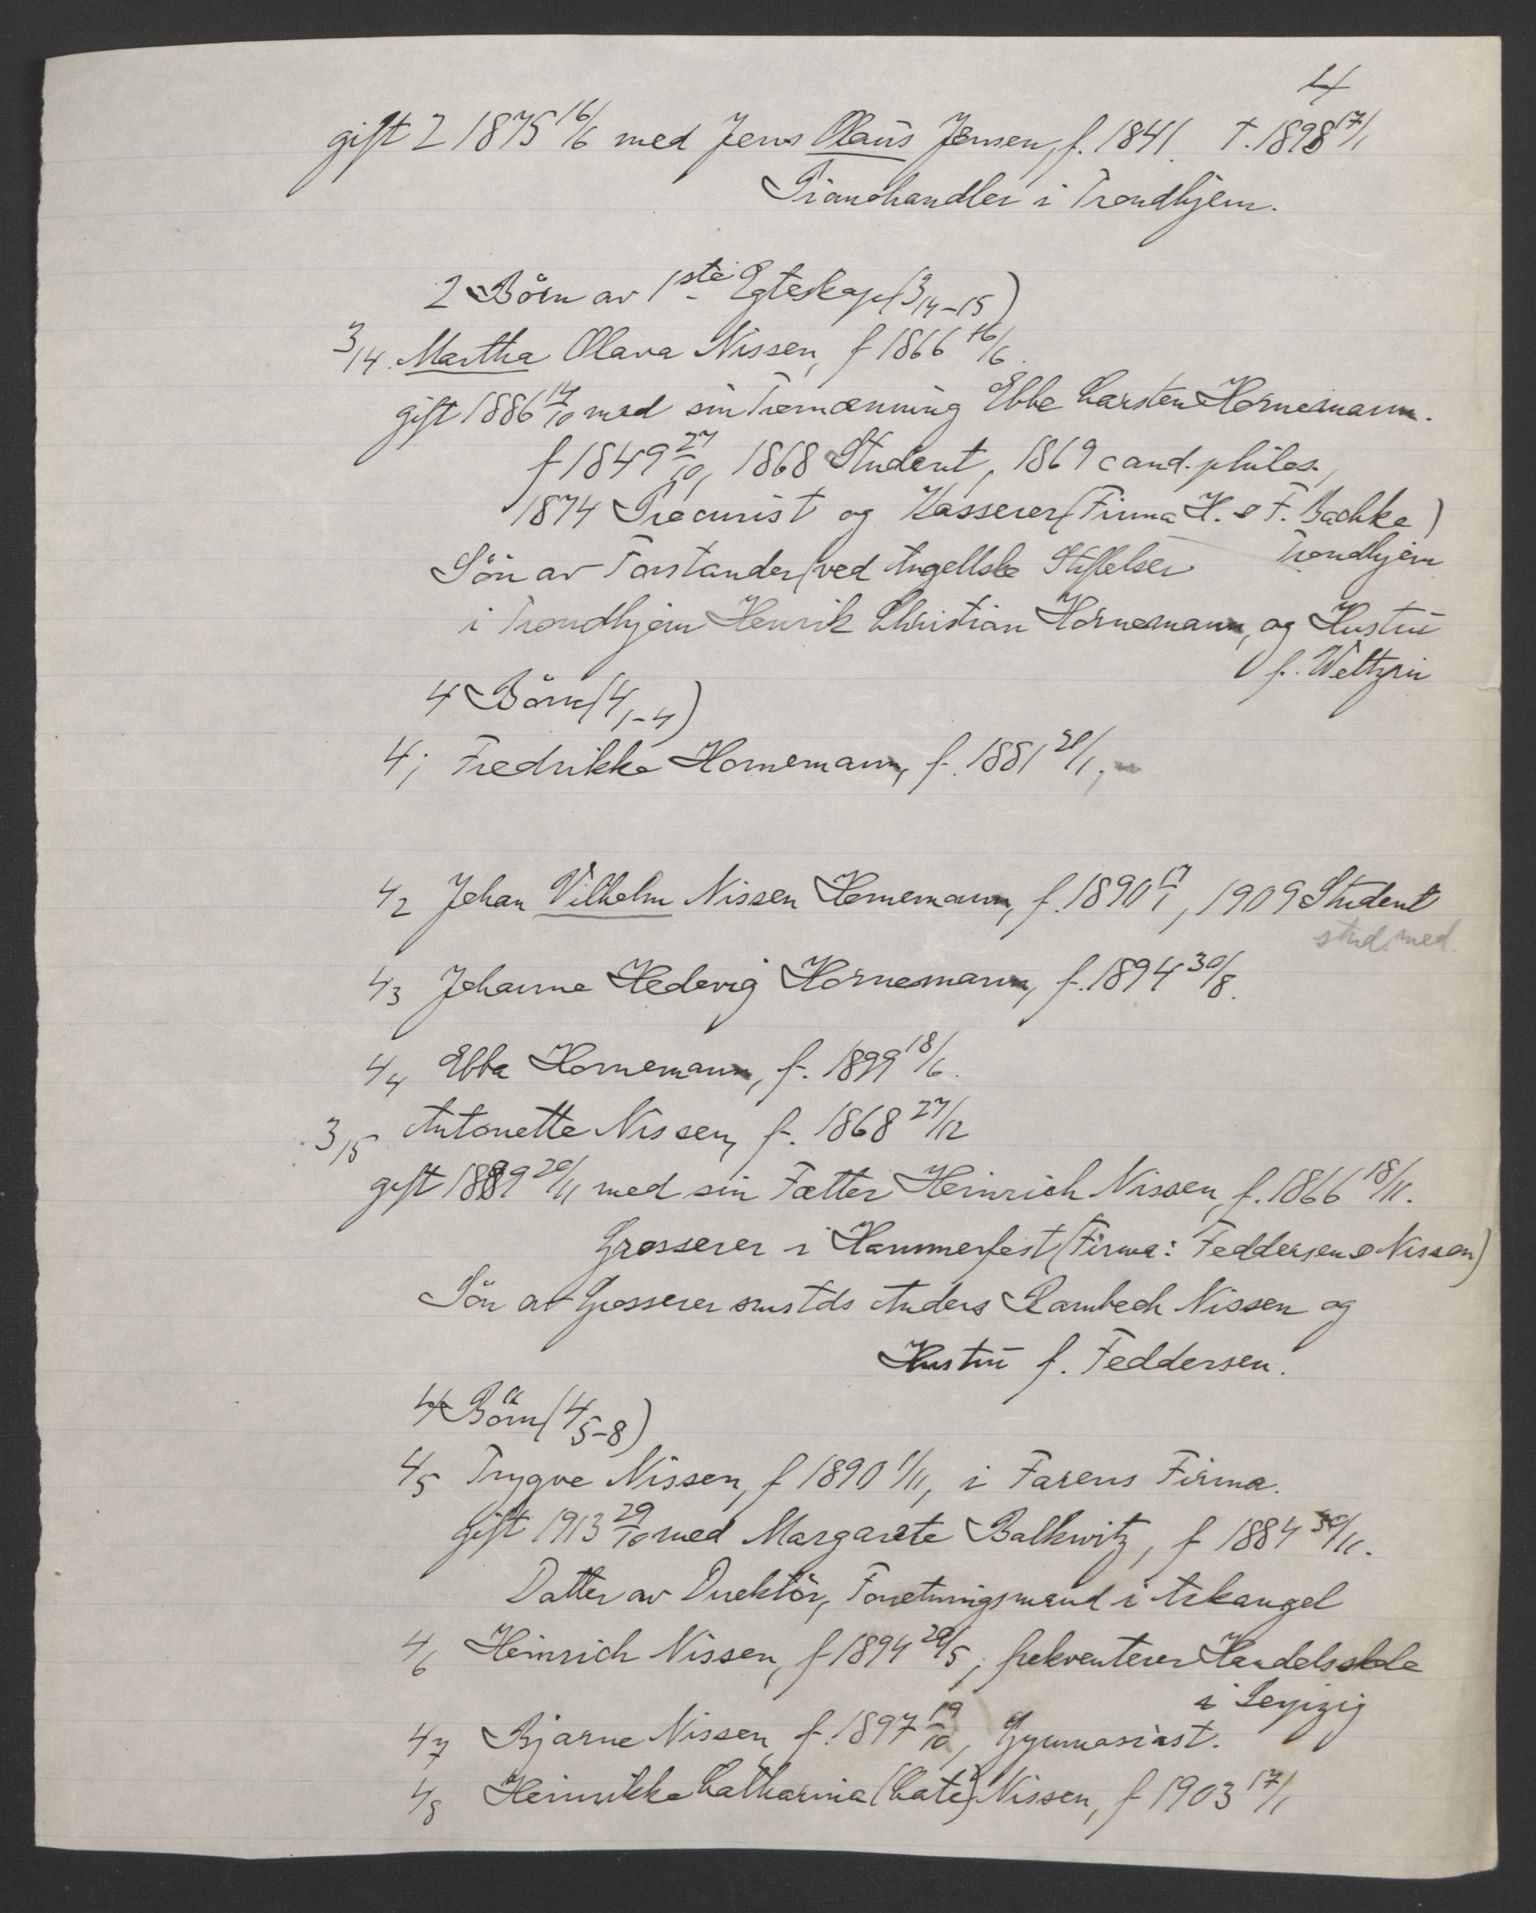 4
gift 2 1875 16/6 med Jens Olaüs Jensen, f. 1841. †. 1898 17/1
Pianohandler i Trondhjem.
2 Börn av 1ste Egteskap (3/14-15)
3/14. Martha Olava Nissen, f 1866 16/6.
gift 1886 14/10 med sin Tremænning Ebbe Carsten Hornemann.
f 1849 27/10, 1868 Student, 1869 cand. philos,
1874 Procurist og Kasserer (Firma H. & F. Bachke)
Trondhjem
Sön av Forstander ved Angellske Stiftelser
i Trondhjem Henrik Christian Hornemann, og Hustrü
f. Weltzin
4 Börn (4/1-4)
4/1 Fredrikke Hornemann, f. 1881 21/1,
4/2 Johan Vilhelm Nissen Hornemann, f. 1890 17/1, 1909 Student
stud. med.
4/3 Johanne Hedevig Hornemann, f. 1894 30/8.
4/4 Ebba Hornemann, f. 1899 18/6.
3/15 Antonette Nissen, f. 1868 27/12
gift 1889 20/11 med sin Fætter Heinrich Nissen, f. 1866 18/11.
Grosserer i Hammerfest (Firma: Feddersen & Nissen)
Sön av Grosserer smstds Anders Rambech Nissen og
Hustrü f. Feddersen.
4 Börn (4/5-8)
4/5 Trygve Nissen, f 1890 1/11, i Farens Firma.
gift 1913 29/10 med Margarete Balkwitz, f 1884 30/11.
Datter av Direktör, Forretningsmand i Arkangel
4/6 Heinrich Nissen, f 1894 20/5, frekventerer Handelsskole
i Leipzig
4/7 Bjarne Nissen, f. 1897 19/10, Gymnasiast.
4/8 Heinrikke Catharina (Cate) Nissen, f 1903 17/1